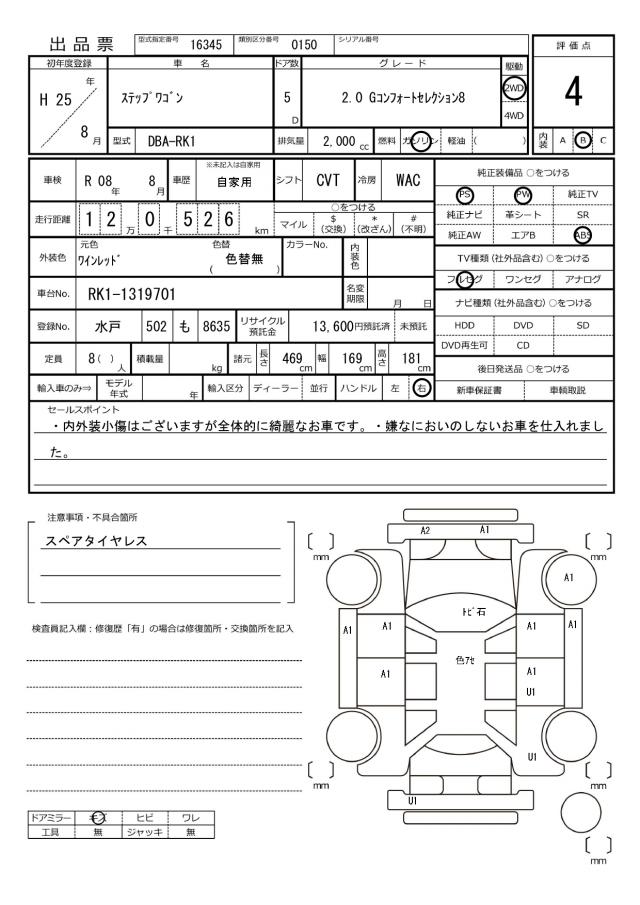 出品票 型式指定番号 16345 類別区分番号 0150 シリアル番号
評価点
4
初年度登録 車名 ドア数 グレード 駆動
H 25 年 8 月
ステップワゴン 5 D 2.0 Gコンフォートセレクション8 2WD
4WD
型式 DBA-RK1 排気量 2,000 cc 燃料 ガソリン 軽油 ( )
内装 A B C
車検 R 08 年 8 月 車歴 ※未記入は自家用 自家用 シフト CVT 冷房 WAC
走行距離 12 万 0 千 526 km
○をつける
マイル $ (交換) * (改ざん) # (不明)
外装色 元色 ワインレッド 色替 ( 色替無 ) カラーNo. 内装色
車台No. RK1-1319701 名変期限 月 日
登録No. 水戸 502 も 8635 リサイクル預託金 13,600円預託済 未預託
定員 8( ) 人 積載量 kg 諸元 長さ 469 cm 幅 169 cm 高さ 181 cm
輸入車のみ⇒ モデル年式 年 輸入区分 ディーラー 並行 ハンドル 左 右
純正装備品 ○をつける
PS PW 純正TV
純正ナビ 革シート SR
純正AW エアB ABS
TV種類 (社外品含む) ○をつける
フルセグ ワンセグ アナログ
ナビ種類 (社外品含む) ○をつける
HDD DVD SD
DVD再生可 CD
後日発送品 ○をつける
新車保証書 車輌取説
セールスポイント
・内外装小傷はございますが全体的に綺麗なお車です。・嫌なにおいのしないお車を仕入れまし
た。
注意事項・不具合箇所
スペアタイヤレス
検査員記入欄：修復歴「有」の場合は修復箇所・交換箇所を記入
ドアミラー キズ ヒビ ワレ
工具 無 ジャッキ 無
A2 A1
〔 〕 mm
〔 〕 mm
A1
トビ石
A1 A1 A1 A1
色アセ
A1 A1
U1
U1
〔 〕 mm
〔 〕 mm
U1
〔 〕 mm